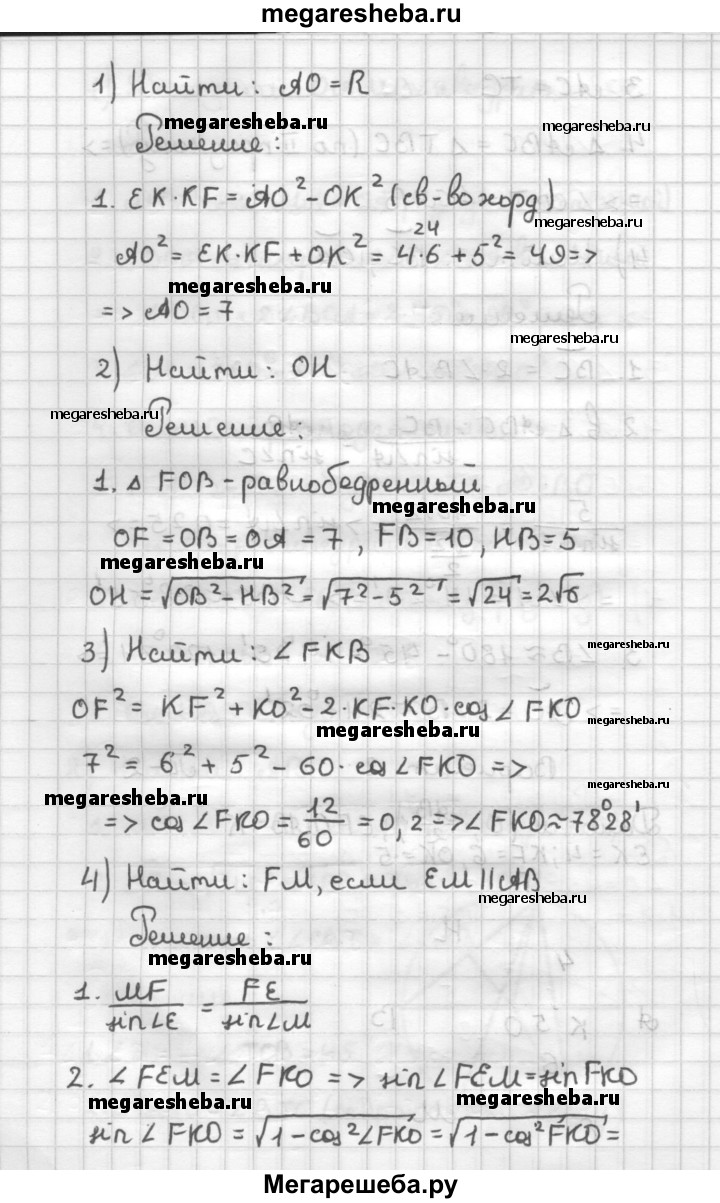 megaresheba.ru
1) Найти: AO = R
megaresheba.ru
megaresheba.ru
Решение:
1. EK·KF = AO² - OK² (св-во хорд)
megaresheba.ru
24
AO² = EK·KF + OK² = 4·6 + 5² = 49 =>
megaresheba.ru
=> AO = 7
megaresheba.ru
2) Найти: OH
megaresheba.ru
Решение:
1. △ FOB - равнобедренный
megaresheba.ru
OF = OB = OA = 7, FB = 10, HB = 5
megaresheba.ru
OH = √OB² - HB² = √7² - 5² = √24 = 2√6
megaresheba.ru
3) Найти: ∠ FKB
OF² = KF² + KO² - 2·KF·KO·cos ∠ FKO
megaresheba.ru
megaresheba.ru
7² = 6² + 5² - 60·cos ∠ FKO =>
megaresheba.ru
megaresheba.ru
=> cos ∠ FKO = 12/60 = 0,2 => ∠ FKO ≈ 78°28'
4) Найти: FM, если EM || AB
megaresheba.ru
Решение:
megaresheba.ru
1. MF/sin∠E = FE/sin∠M
2. ∠ FEM = ∠ FKO => sin ∠ FEM = sin FKO
megaresheba.ru
megaresheba.ru
sin ∠ FKO = √1 - cos² ∠FKO = √1 - cos² FKO =
Мегарешеба.ру